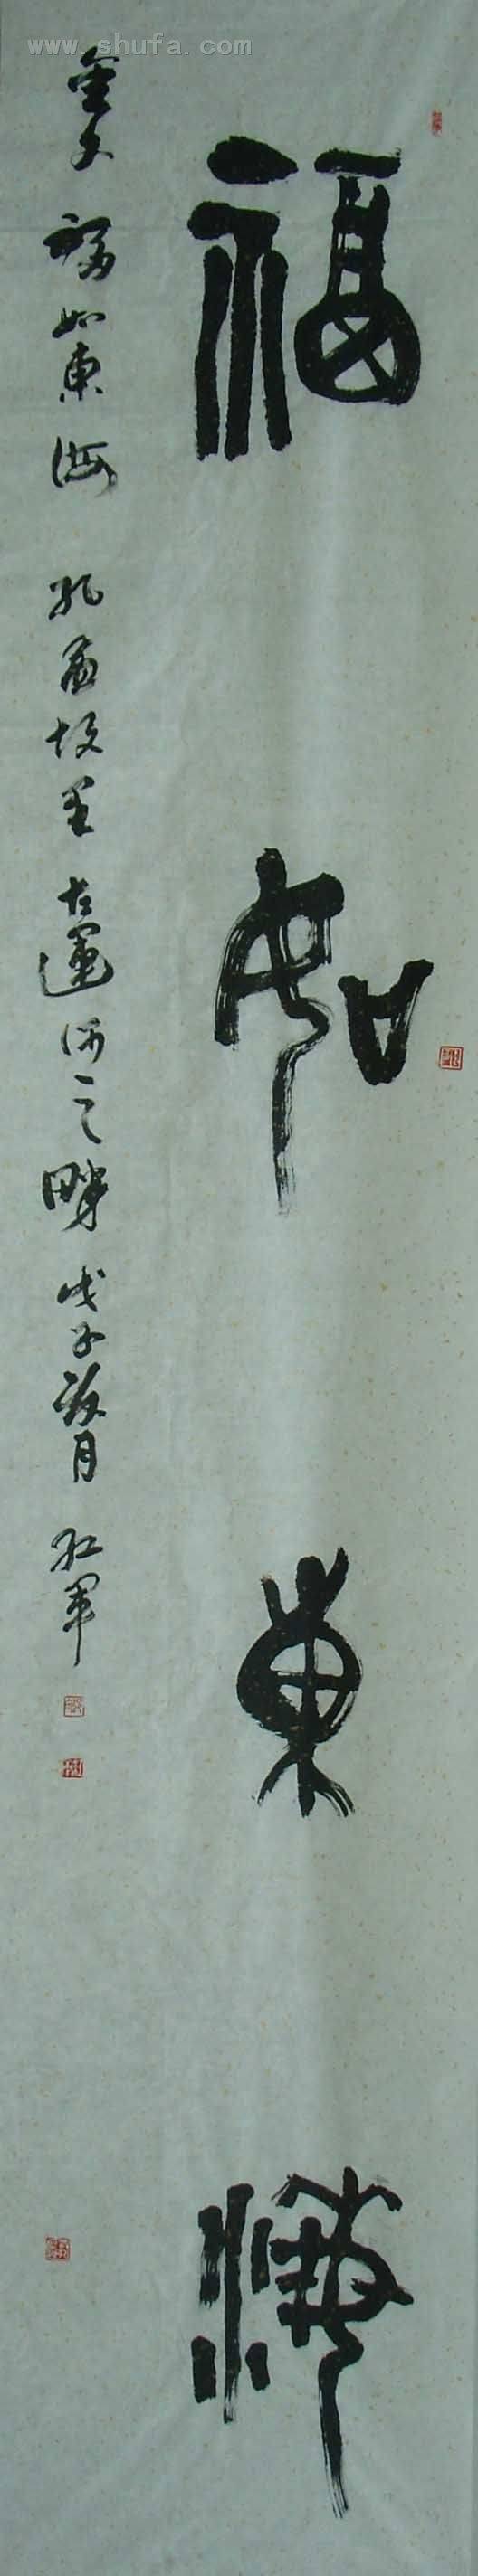 www.shufa.com
福如東海
金文福如東海 孔孟故里 古運河之畔 戊子歲月 紅軍